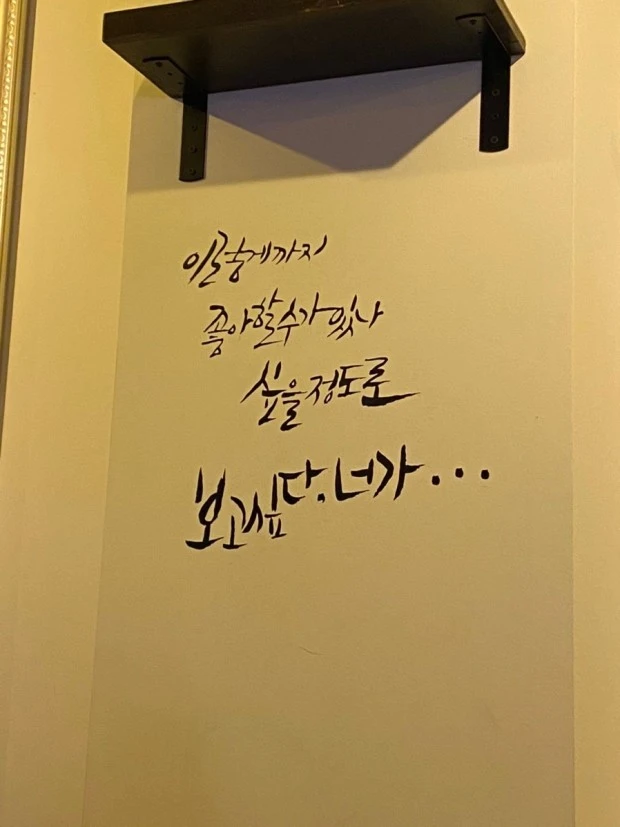 이렇게까지
좋아할수가 있나
싶을정도로
보고싶다. 너가...